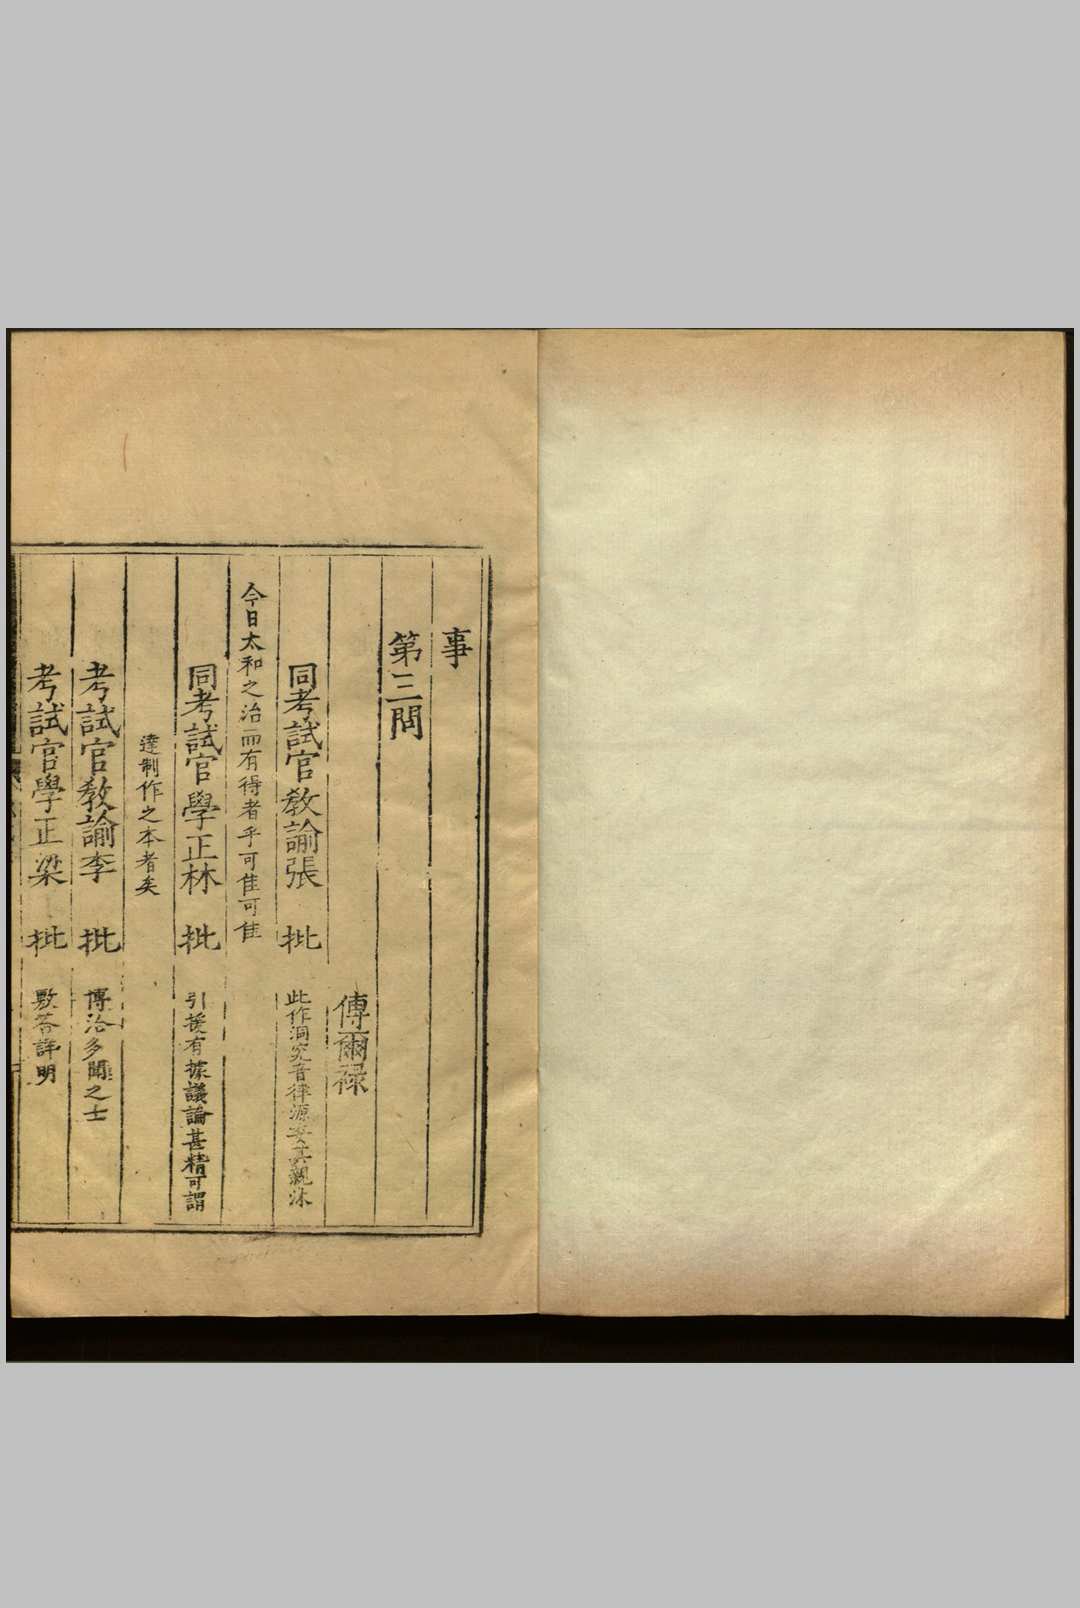 事
第三問
傅爾祿
同考試官教諭張 批 此作洞究音律源委其親沐
今日太和之治而有得者乎可佳可佳
同考試官學正林 批 引援有據議論甚精可謂
達制作之本者矣
考試官教諭李 批 博洽多聞之士
考試官學正梁 批 敷答詳明